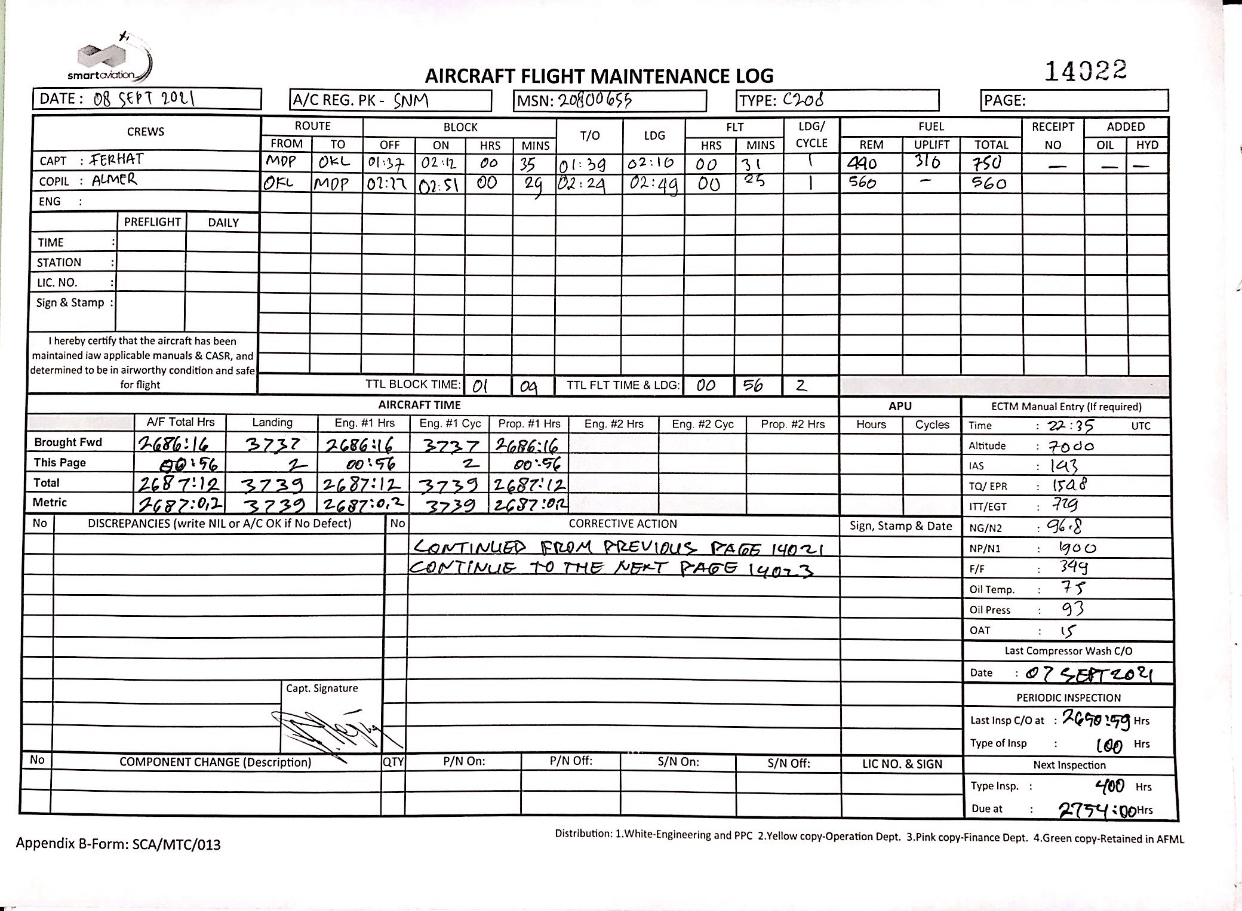 smartaviation
AIRCRAFT FLIGHT MAINTENANCE LOG
14022
DATE : 08 SEPT 2021 A/C REG. PK - SNM MSN: 20800655 TYPE: C208 PAGE:
CREWS ROUTE BLOCK T/O LDG FLT LDG/ CYCLE FUEL RECEIPT NO ADDED
FROM TO OFF ON HRS MINS HRS MINS REM UPLIFT TOTAL OIL HYD
CAPT : FERHAT MDP OKL 01:37 02:12 00 35 01:39 02:10 00 31 1 440 310 750 — — —
COPIL : ALMER OKL MDP 02:22 02:51 00 29 02:24 02:49 00 25 1 560 - 560
ENG :
PREFLIGHT DAILY
TIME :
STATION :
LIC. NO. :
Sign & Stamp :
I hereby certify that the aircraft has been
maintained iaw applicable manuals & CASR, and
determined to be in airworthy condition and safe
for flight
TTL BLOCK TIME: 01 09 TTL FLT TIME & LDG: 00 56 2
AIRCRAFT TIME APU ECTM Manual Entry (If required)
A/F Total Hrs Landing Eng. #1 Hrs Eng. #1 Cyc Prop. #1 Hrs Eng. #2 Hrs Eng. #2 Cyc Prop. #2 Hrs Hours Cycles Time : 22:35 UTC
Brought Fwd 2686:16 3737 2686:16 3737 2686:16 Altitude : 7000
This Page 00:56 2 00:56 2 00:56 IAS : 143
Total 2687:12 3739 2687:12 3739 2687:12 TQ/ EPR : 1508
Metric 2687:0,2 3739 2687:0,2 3739 2687:0,2 ITT/EGT : 729
No DISCREPANCIES (write NIL or A/C OK if No Defect) No CORRECTIVE ACTION Sign, Stamp & Date NG/N2 : 96.8
CONTINUED FROM PREVIOUS PAGE 14021 NP/N1 : 1900
CONTINUE TO THE NEXT PAGE 14023 F/F : 349
Oil Temp. : 75
Oil Press : 93
OAT : 15
Last Compressor Wash C/O
Date : 07 SEPT 2021
Capt. Signature
PERIODIC INSPECTION
Last Insp C/O at : 2650:59 Hrs
Type of Insp : 100 Hrs
No COMPONENT CHANGE (Description) QTY P/N On: P/N Off: S/N On: S/N Off: LIC NO. & SIGN Next Inspection
Type Insp. : 400 Hrs
Due at : 2754:00 Hrs
Appendix B-Form: SCA/MTC/013
Distribution: 1.White-Engineering and PPC 2.Yellow copy-Operation Dept. 3.Pink copy-Finance Dept. 4.Green copy-Retained in AFML